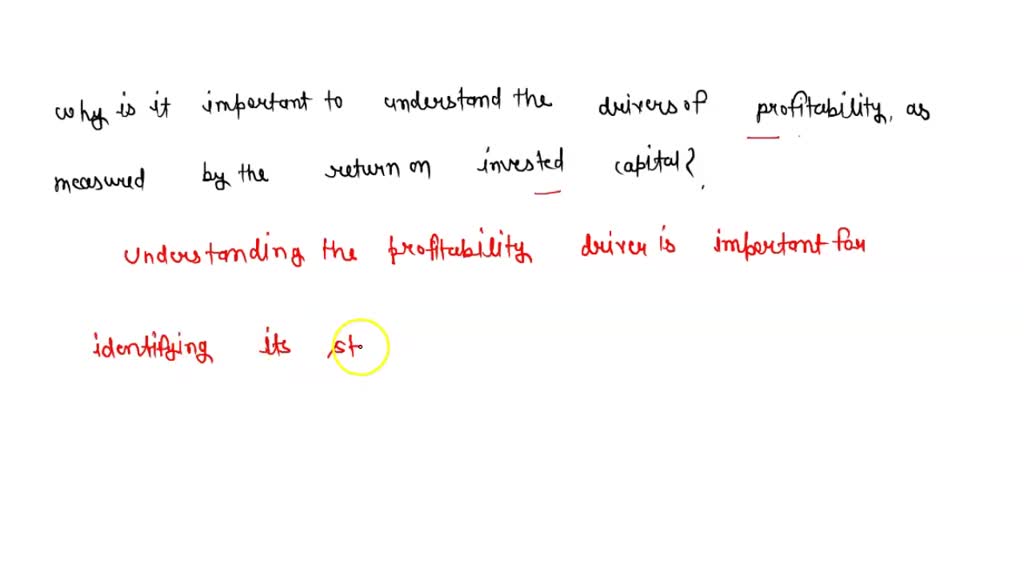 why is it important to understand the drivers of profitability, as
measured by the return on invested capital?
understanding the profitability driver is important for
identifying its st